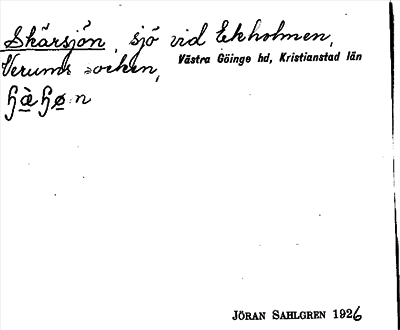 Skärsjön, sjö vid Ekholmen,
Verums socken, Västra Göinge hd, Kristianstad län
JÖRAN SAHLGREN 1926